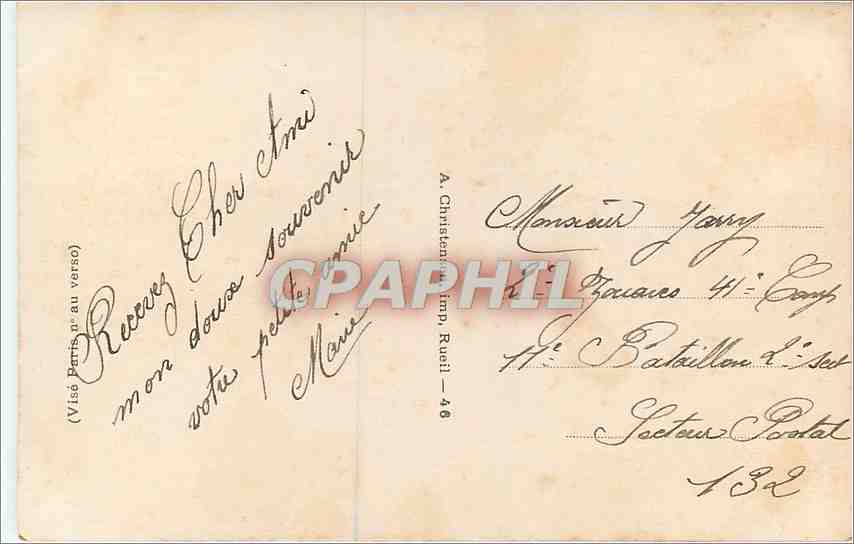 (Visé Paris n° au verso)
Recevez Cher Ami
mon doux souvenir
votre petite amie
Marie
A. Christensen, imp, Rueil — 46
CPAPHIL
Monsieur Jarry
2e Zouaves 41e Comp
11e Bataillon 2e sect
Secteur Postal
132